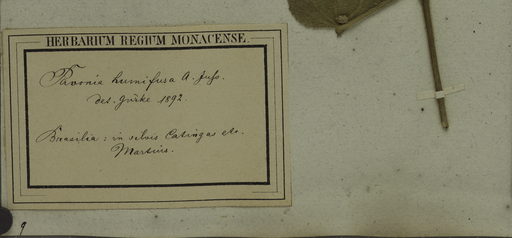 HERBARIUM REGIUM MONACENSE.
Pavonia humifusa A. Juss.
det. Gürke 1892.
Brasilia: in silvis Catingas etc.
Martius.
9